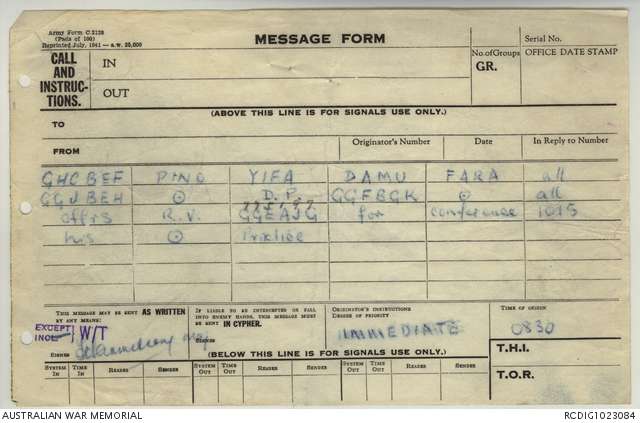 Army Form C.2128
(Pads of 100)
Reprinted July, 1941—a.w. 20,000
MESSAGE FORM
Serial No.
CALL AND INSTRUCTIONS.
IN
OUT
No. of Groups
GR.
OFFICE DATE STAMP
(ABOVE THIS LINE IS FOR SIGNALS USE ONLY.)
TO
FROM
Originator's Number
Date
In Reply to Number
GHCBEF PINO YIFA DAMU FARA all
GGJBEH ⊙ D.P. GGFBGK ⊙ all
offrs R.V. GGEAJG for conference 1015
hrs ⊙
THIS MESSAGE MAY BE SENT AS WRITTEN BY ANY MEANS:
IF LIABLE TO BE INTERCEPTED OR FALL INTO ENEMY HANDS, THIS MESSAGE MUST BE SENT IN CIPHER.
ORIGINATOR'S INSTRUCTIONS
DEGREE OF PRIORITY
TIME OF ORIGIN
EXCEPT
W/T
SIGNED
SIGNED
IMMEDIATE
0830
T.H.I.
T.O.R.
(BELOW THIS LINE IS FOR SIGNALS USE ONLY.)
SYSTEM IN TIME IN READER SENDER SYSTEM OUT TIME OUT READER SENDER SYSTEM OUT TIME OUT READER SENDER
AUSTRALIAN WAR MEMORIAL
RCDIG1023084